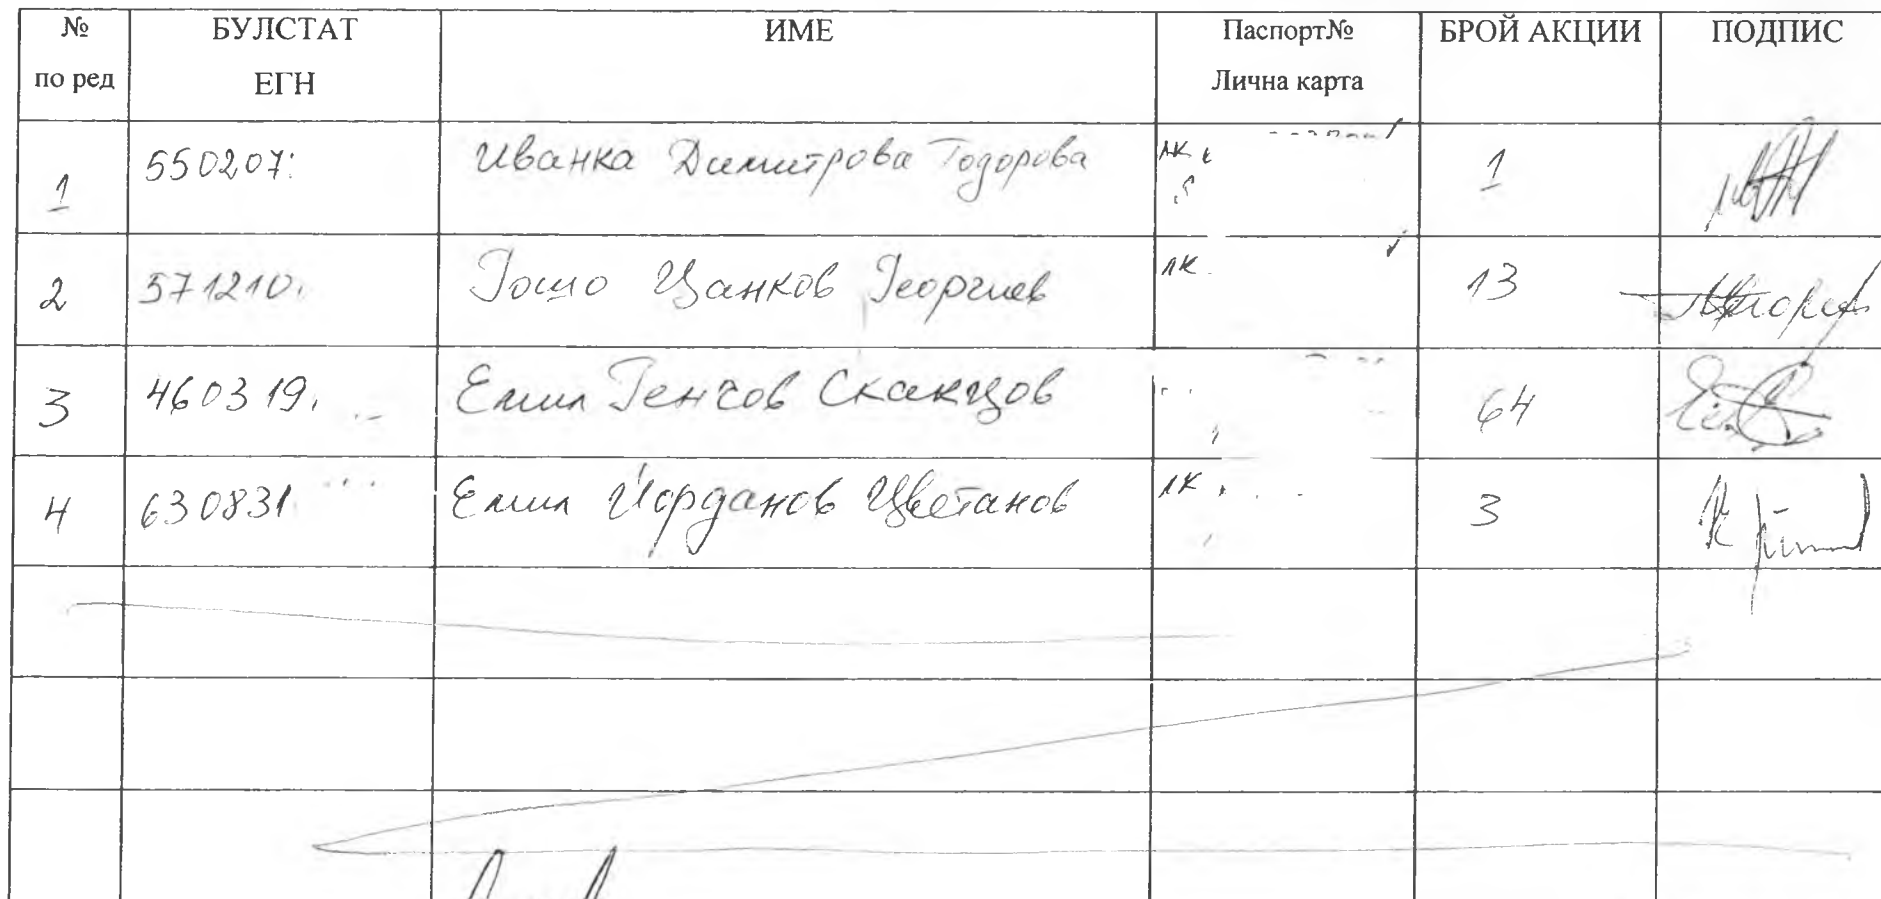 № по ред БУЛСТАТ ЕГН ИМЕ Паспорт№ Лична карта БРОЙ АКЦИИ ПОДПИС
1 550207 Иванка Димитрова Тодорова ЛК 1
2 571210 Гошо Цанков Георгиев ЛК 13
3 460319 Емил Генчов 64
4 630831 Емил Йорданов Цветанов ЛК 3